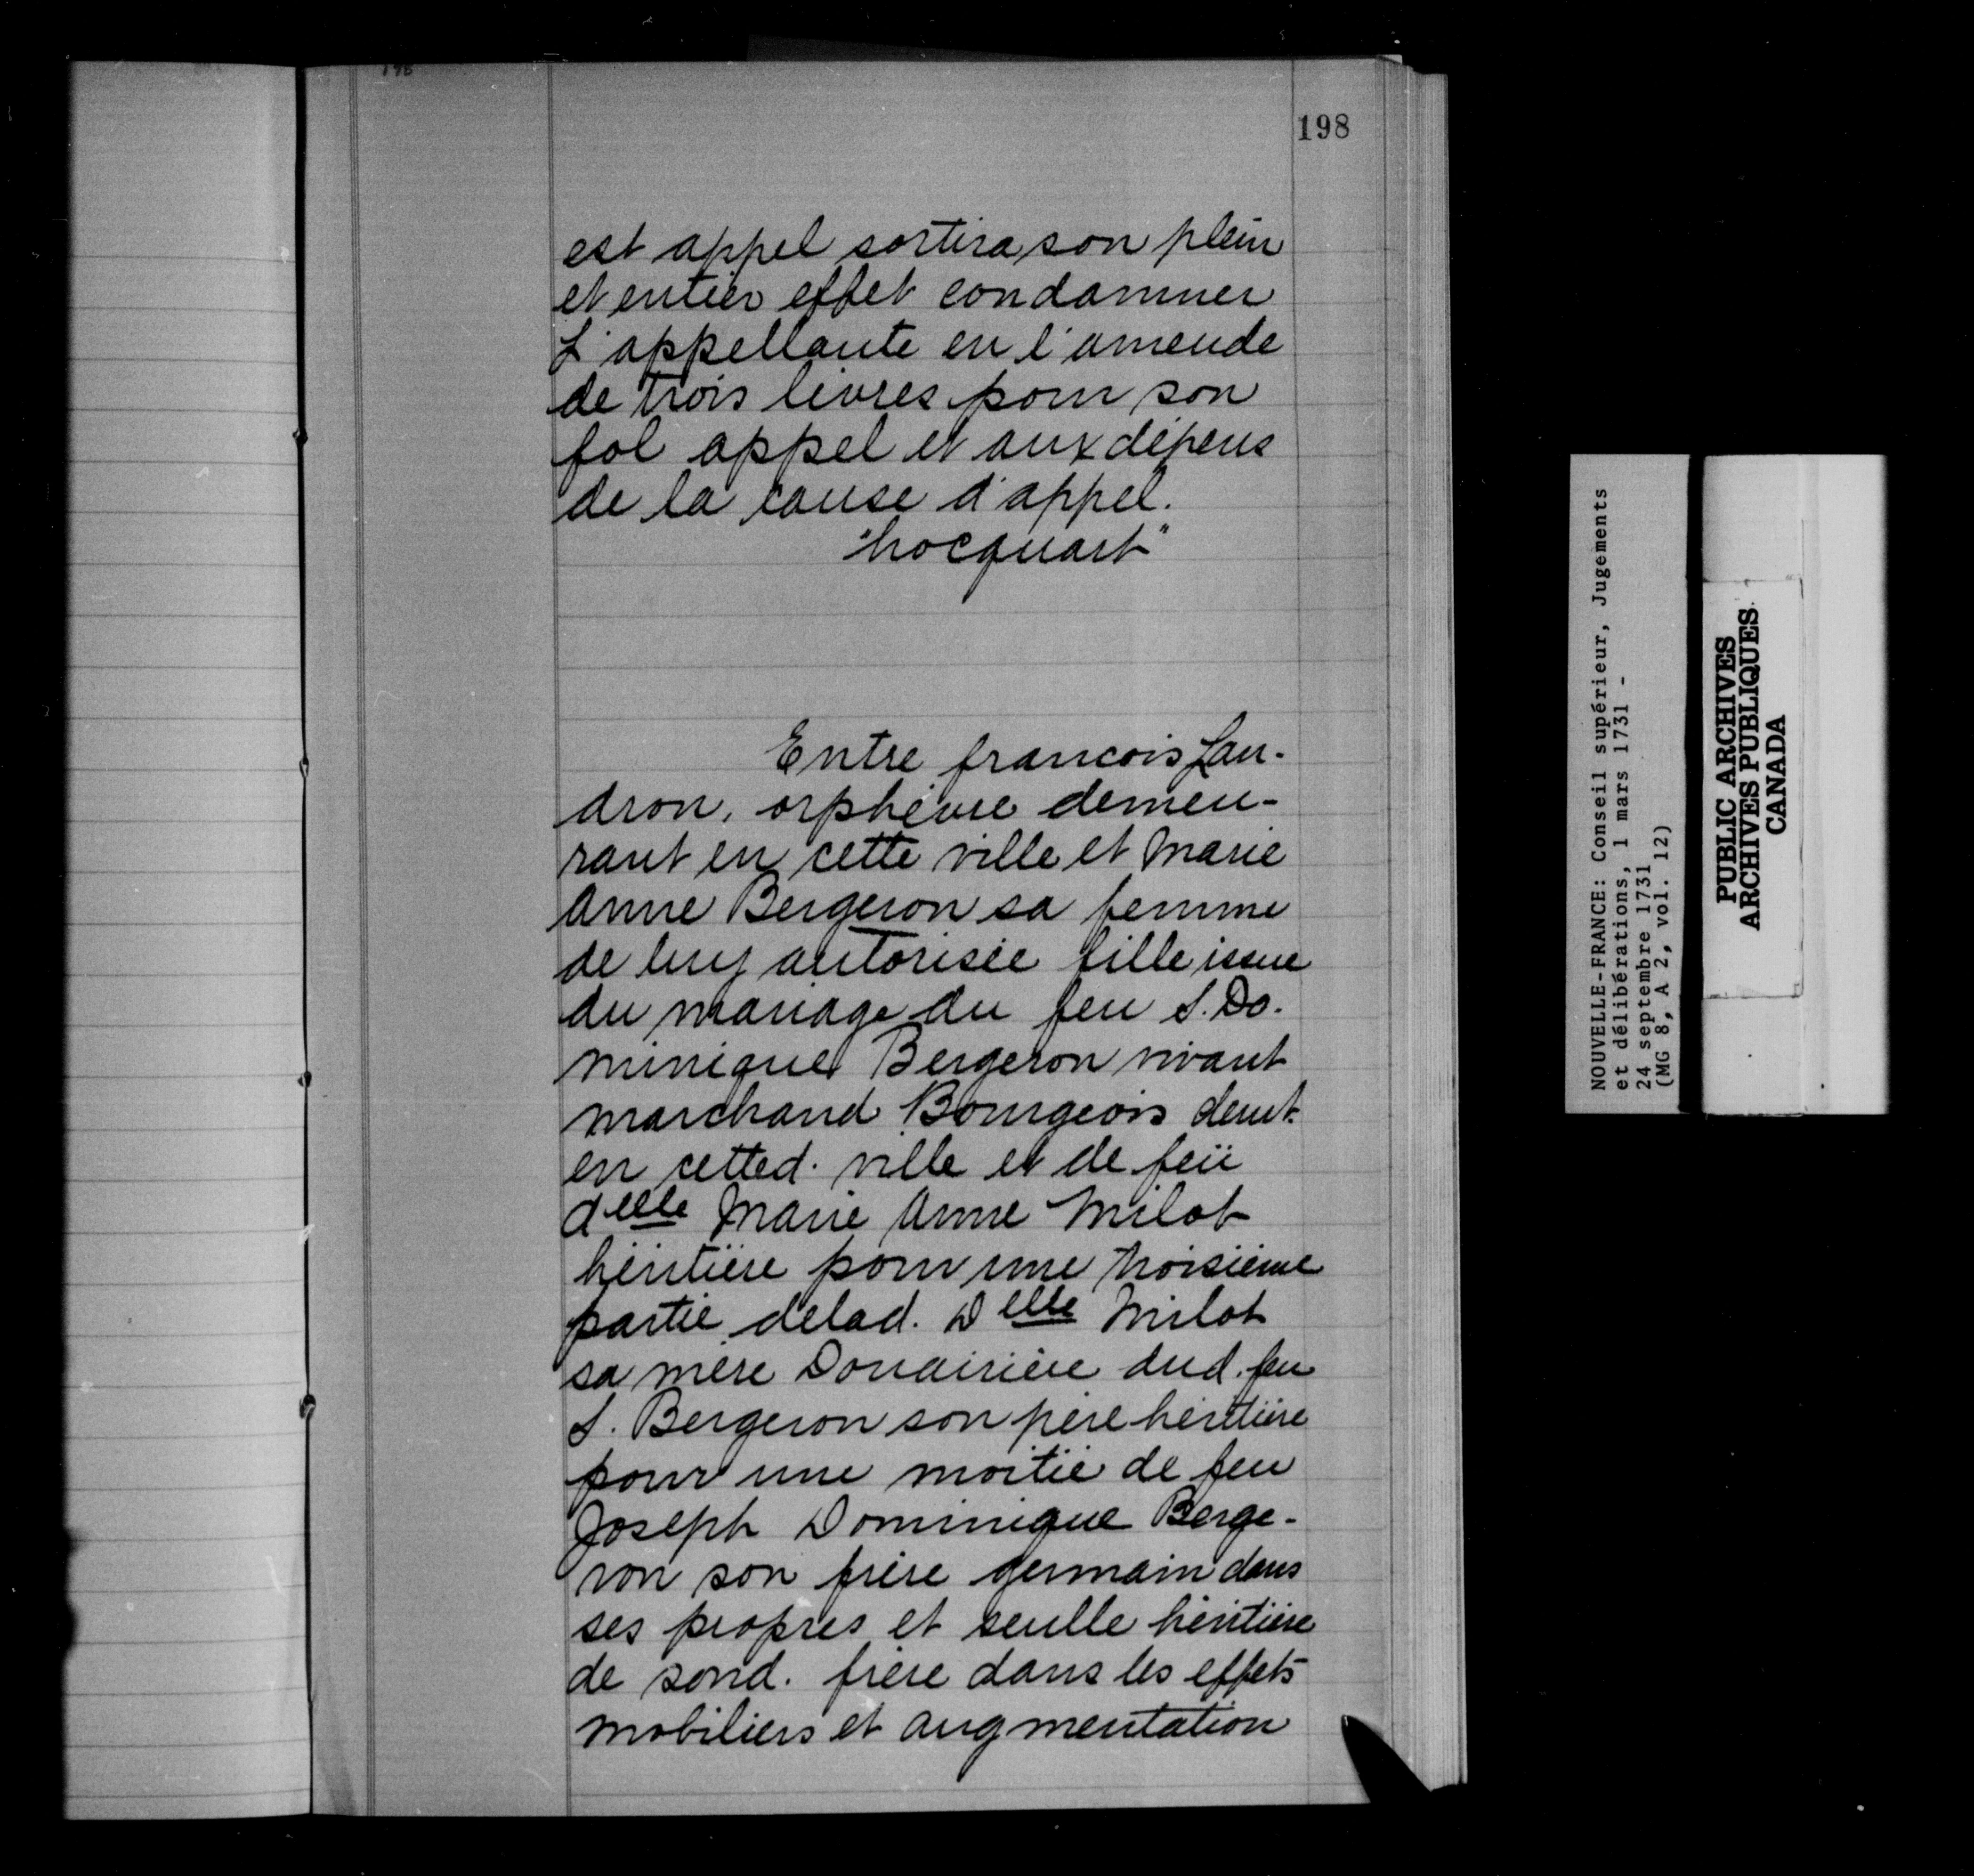 198
est appel sortira son plein
et entier effet condamner
L'appellante en l'amende
de trois livres pour son
fol appel et aux dépens
de la cause d'appel.
"hocquart"
Entre francois Lan-
dron, orphévre demeu-
rant en cette ville et Marie
Anne Bergeron sa femme
de luy autorisée fille issue
du mariage du feu S. Do-
minique Bergeron vivant
marchand Bourgeois demt.
en cetted. ville et de feüe
delle Marie Anne Milot
héritière pour une troisième
partie delad. Delle Milot
sa mère Douairière dud. feu
S. Bergeron son père héritière
pour une moitié de feu
Joseph Dominique Berge-
ron son frère germain dans
ses propres et seulle héritière
de sond. frère dans les effets
mobiliers et augmentation
NOUVELLE-FRANCE: Conseil supérieur, Jugements
et délibérations, 1 mars 1731 -
24 septembre 1731
(MG 8, A 2, vol. 12)
PUBLIC ARCHIVES
ARCHIVES PUBLIQUES
CANADA